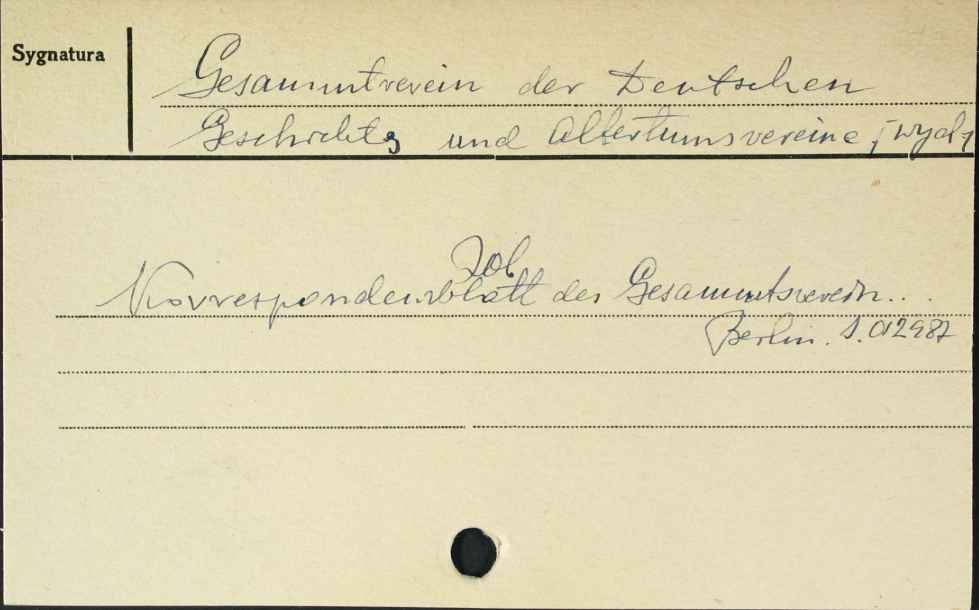 Sygnatura
Gesammtverein der Deutschen
Geschichts und Altertumsvereine [wyd.]
Zob
Korrespondenzblatt des Gesammtverein...
Berlin. S. 012987